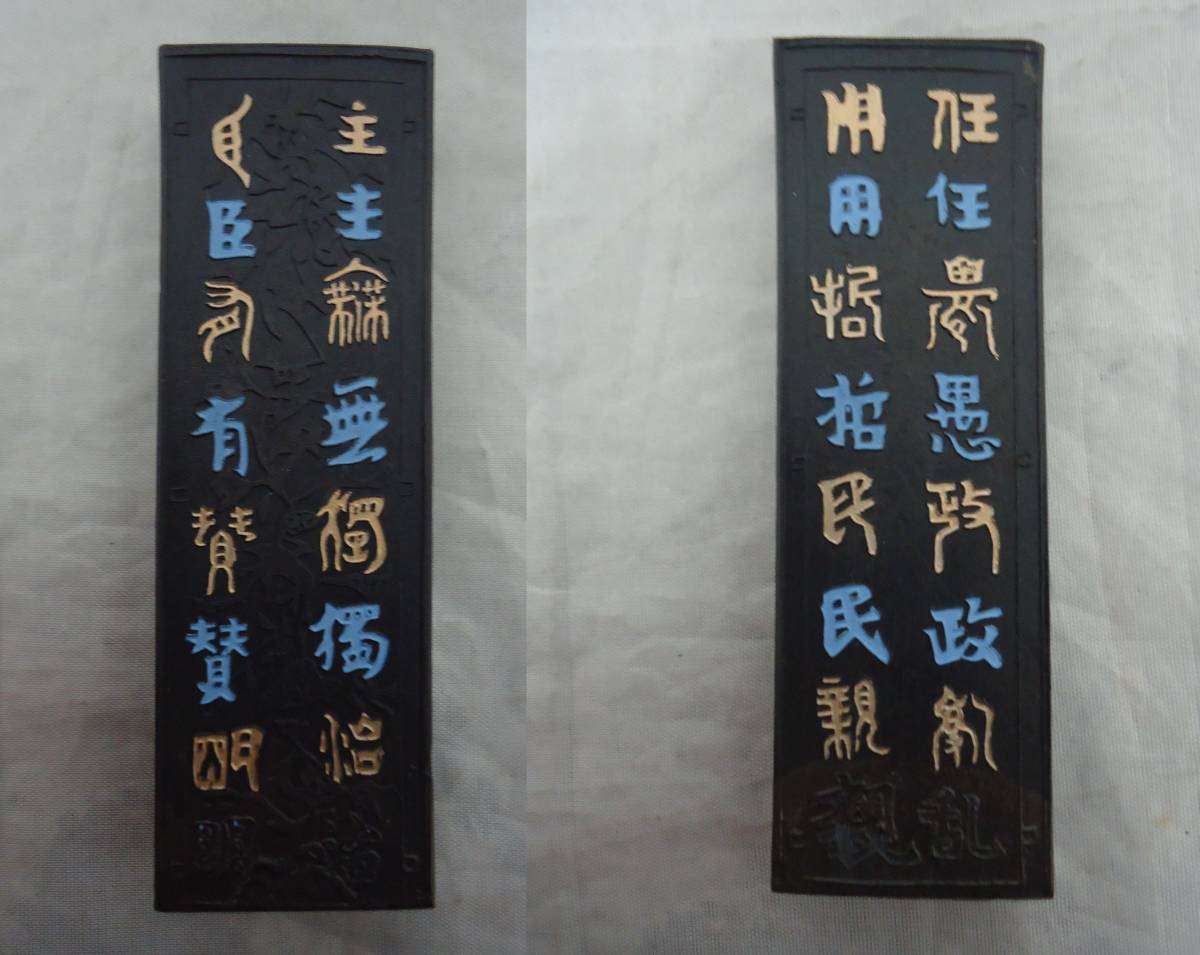 主主無無獨獨治治
臣臣有有賛賛明明
任任愚愚政政亂乱
用用哲哲民民親親